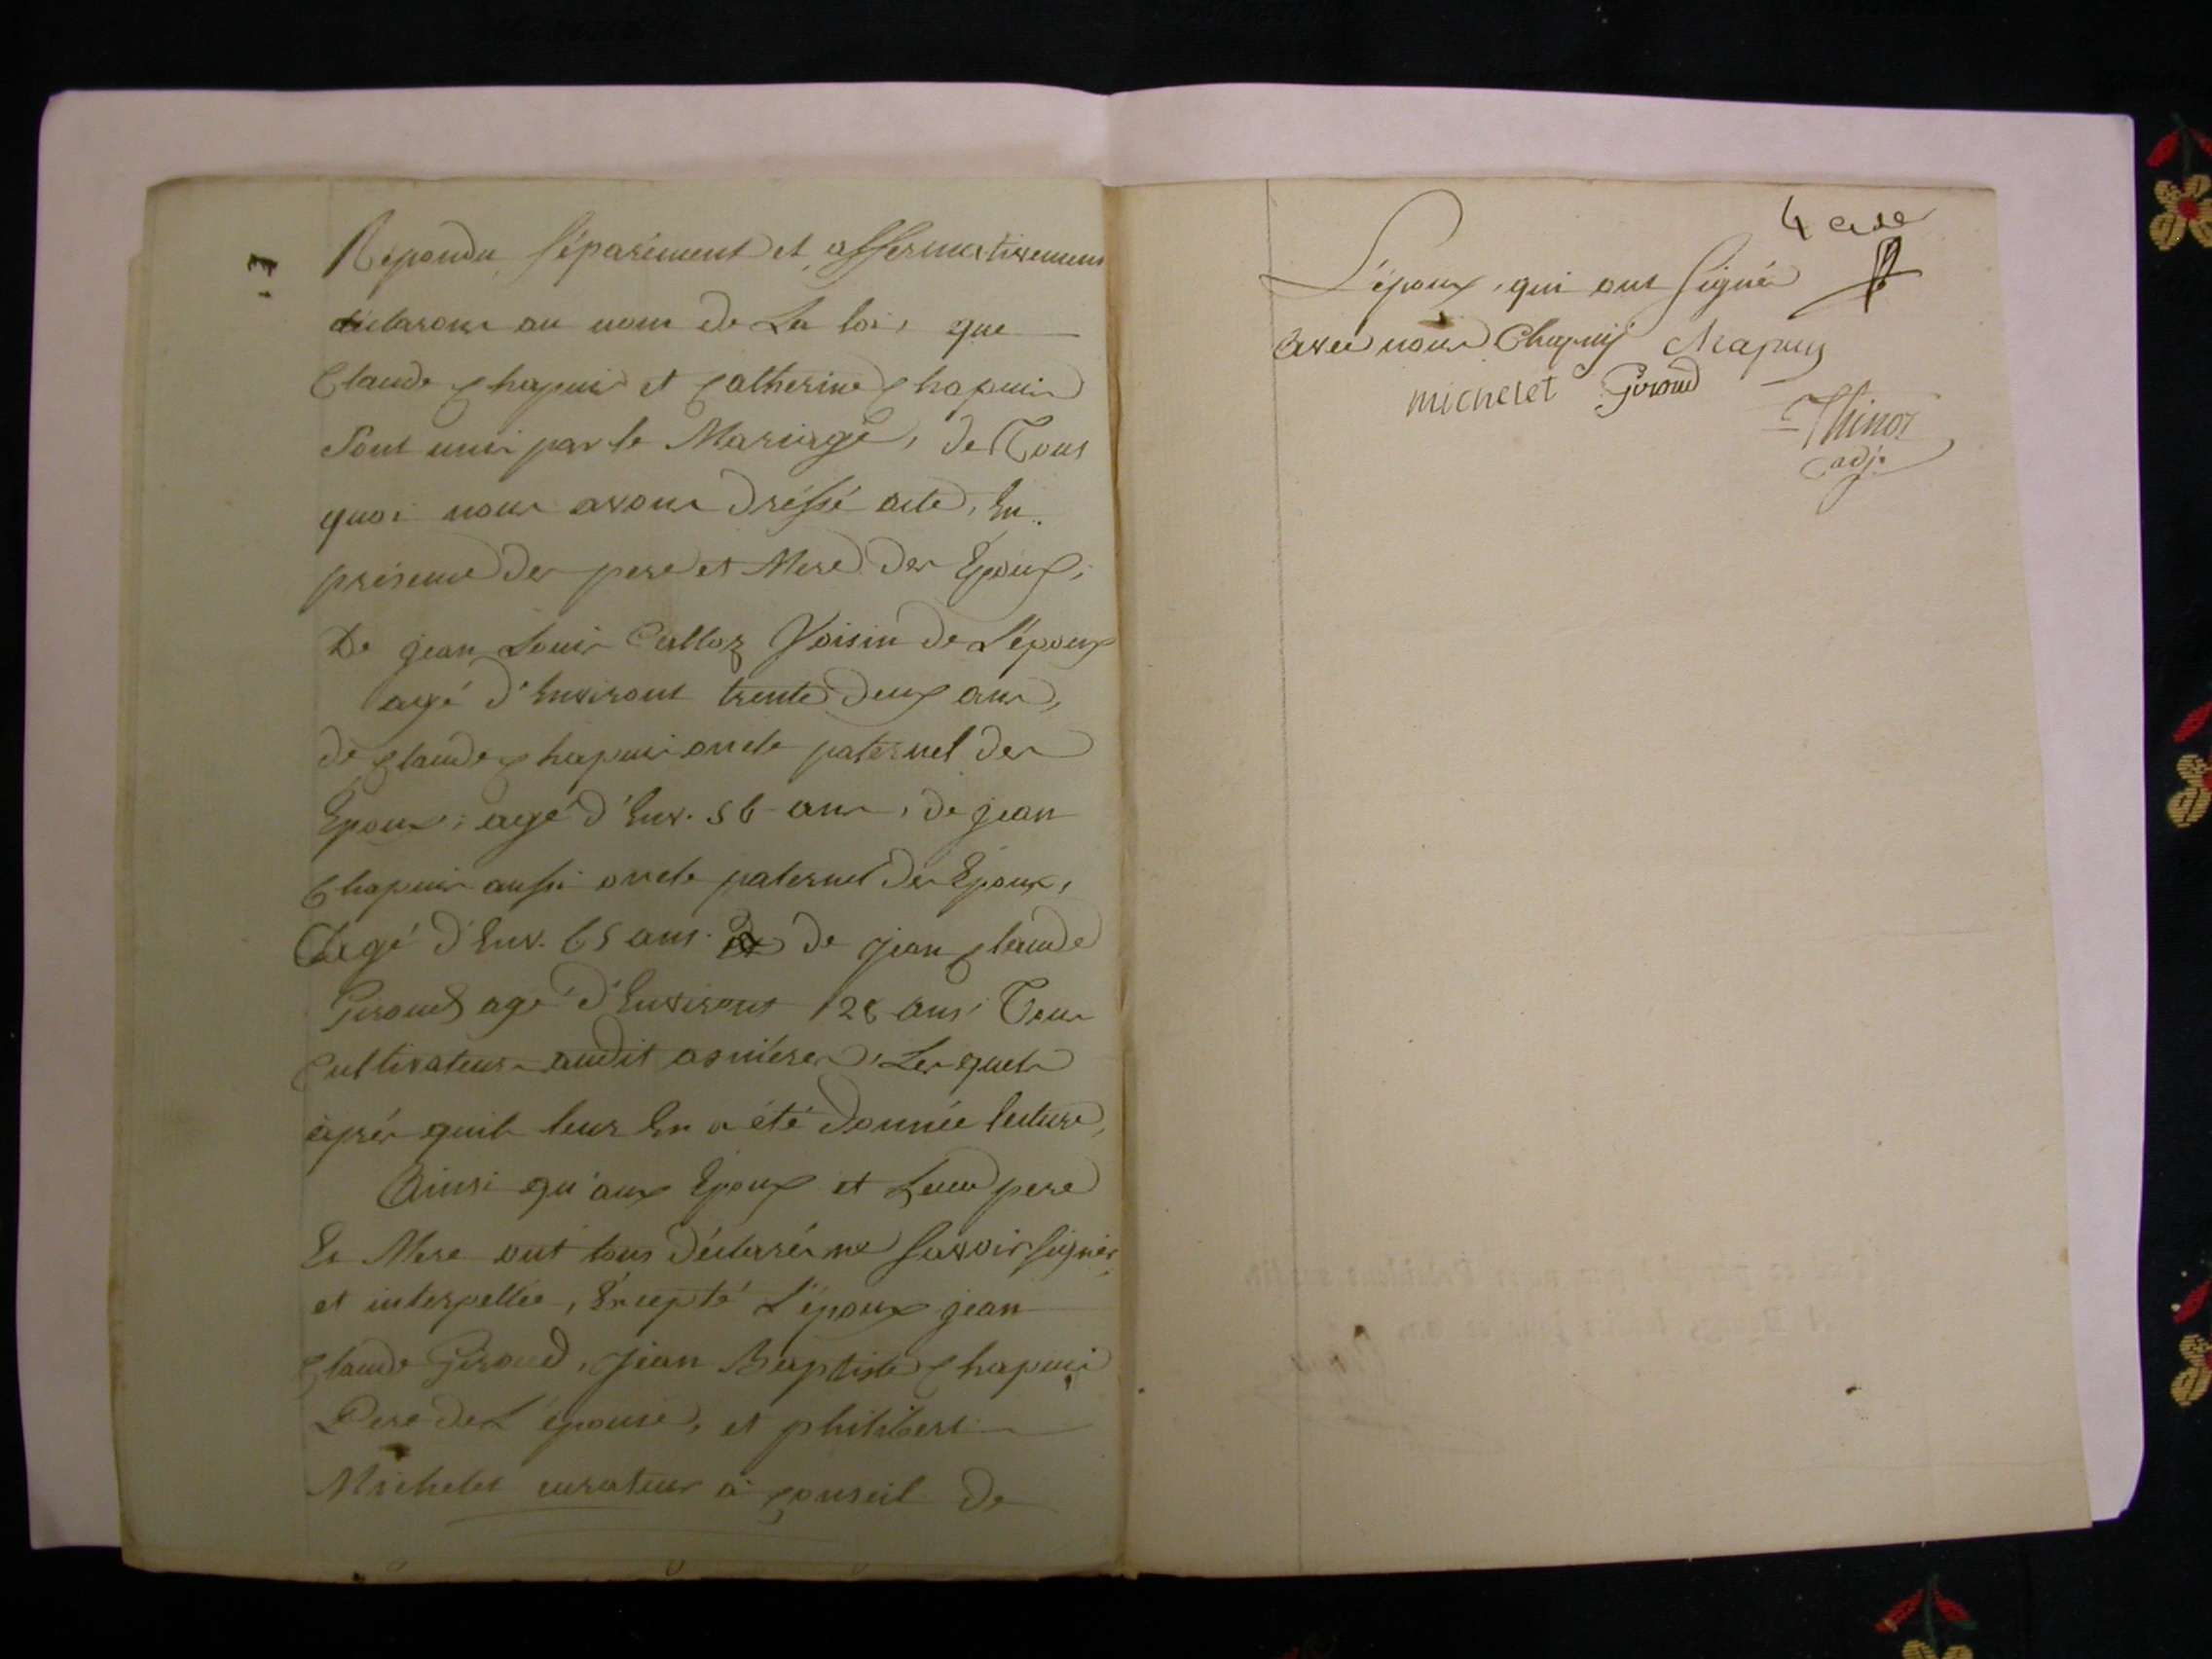 Répondu séparément et affermativement
déclarons au nom de La loi, que
Claude Chapuis et Catherine Chapuis
sont unis par le Mariage, de Tous
quoi nous avons dréssé acte, En
présence des pere et Mere des Epoux,
De jean Louis Calloz Voisin de L'époux
agé d'Environt trente deux ans,
de Claude Chapuis oncle paternel des
Epoux, agé d'Env. 56 ans, de jean
Chapuis aussi oncle paternel des Epoux,
Agé d'Env. 65 ans. de jean Claude
Giroud agé d'Environt 28 ans, Tous
Cultivateurs audit asniéres, Lesquels
aprés quil leur En a été donnée lecture,
Ainsi qu'aux Epoux et Leurs pere
Et Mere ont tous déclarés ne savoir signer
et interpellée, Excepté L'époux jean
Claude Giroud, jean Baptiste Chapuis
Pere de L'épouse, et philibert
Michelet curateur à conseil de
4
L'époux, qui ont signé
avec nous Chapuis Chapuis
michelet Giroud
Thinoz
adj.